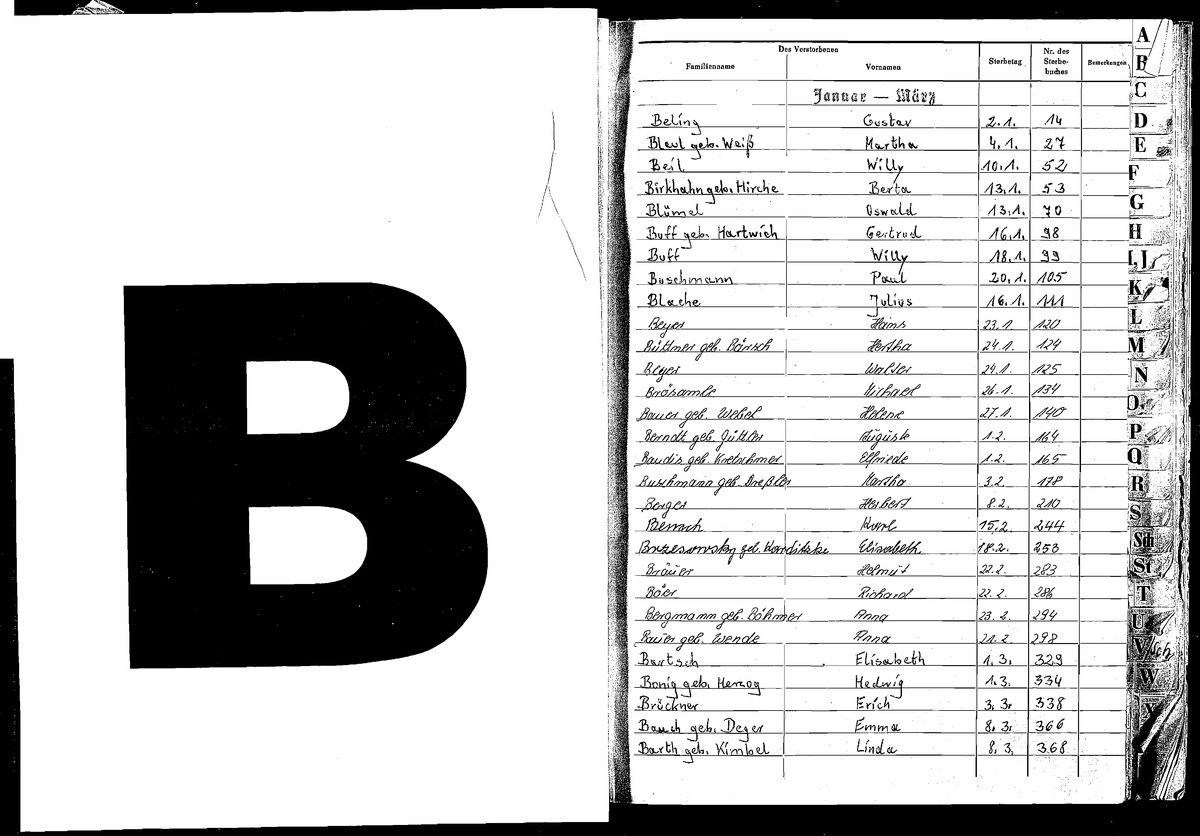 B
Des Verstorbenen
Familienname Vornamen Sterbetag Nr. des Sterbe-buches Bemerkungen
Januar — März
Beling Gustav 2.1. 14
Bleul geb. Weiß Martha 4.1. 27
Beil Willy 10.1. 52
Birkhahn geb. Hirche Berta 13.1. 53
Blümel Oswald 13.1. 70
Buff geb. Hartwich Gertrud 16.1. 98
Buff Willy 18.1. 99
Buschmann Paul 20.1. 105
Blache Julius 16.1. 111
Beyer Hans 23.1. 120
Büttner geb. Börsch Hertha 24.1. 124
Beyer Walter 24.1. 125
Brösamle Michael 26.1. 134
Bauer geb. Webel Helene 27.1. 140
Berndt geb. Güttler Auguste 1.2. 164
Baudis geb. Kretschmer Elfriede 1.2. 165
Buschmann geb. Dreßler Martha 3.2. 178
Berger Herbert 8.2. 210
Karl 15.2. 244
Brzesowsky geb. Elisabeth 18.2. 253
Bräuer Helmut 22.2. 283
Böer Richard 22.2. 286
Bergmann geb. Böhmer Anna 23.2. 294
Bauer geb. Wende Anna 21.2. 298
Bartsch Elisabeth 1.3. 329
Bonig geb. Herzog Hedwig 1.3. 334
Brückner Erich 3.3. 338
Bauch geb. Deger Emma 8.3. 366
Barth geb. Kimbel Linda 8.3. 368
A
B
C
D
E
F
G
H
I, J
K
L
M
N
O
P
Q
R
S
Sch
St
T
U
V
W
X